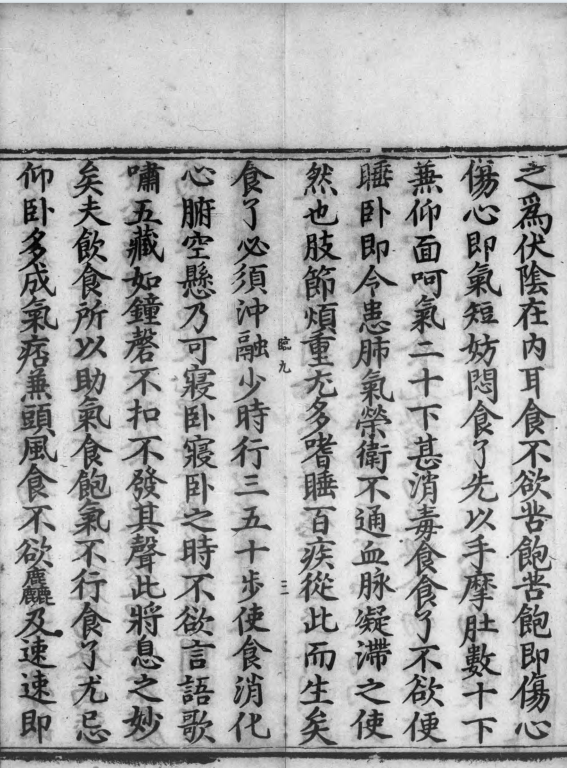 之爲伏陰在內耳食不欲苦飽苦飽即傷心
傷心即氣短妨悶食了先以手摩肚數十下
兼仰面呵氣二十下甚消毒食食了不欲便
睡卧即令患肺氣榮衛不通血脉凝滯之使
然也肢節煩重尤多嗜睡百疾從此而生矣
食了必須沖融少時行三五十步使食消化
心腑空懸乃可寢卧寢卧之時不欲言語歌
嘯五藏如鐘磬不扣不發其聲此將息之妙
矣夫飲食所以助氣食飽氣不行食了尤忌
仰卧多成氣痞兼頭風食不欲麤及速速即